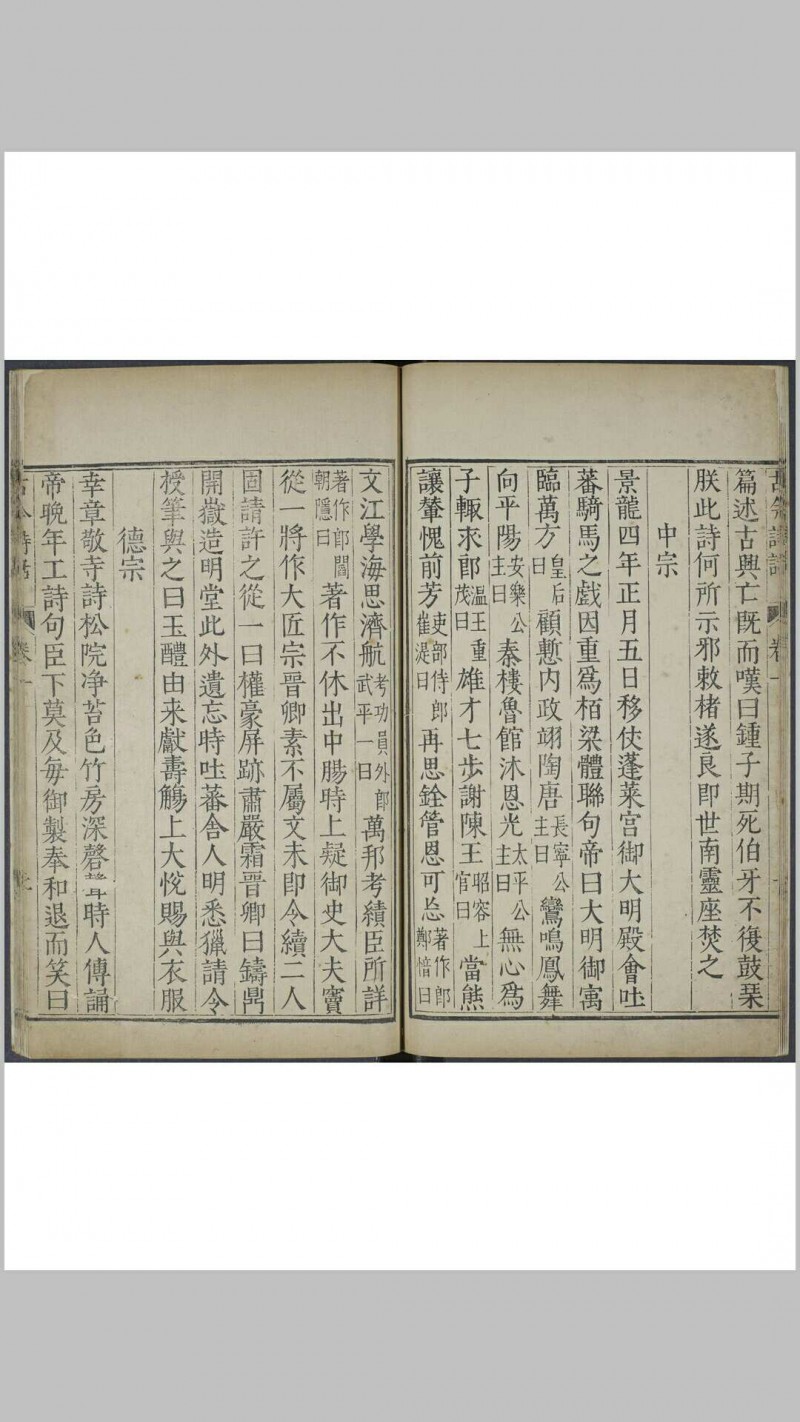 篇述古興亡既而嘆曰鍾子期死伯牙不復鼓琹
朕此詩何所示邪敕褚遂良即世南靈座焚之
中宗
景龍四年正月五日移仗蓬萊宮御大明殿會吐
蕃騎馬之戲因重爲栢梁體聯句帝曰大明御寓
臨萬方皇后曰顧慙内政翊陶唐長寧公主曰鸞鳴鳳舞
向平陽安樂公主曰秦樓魯館沐恩光太平公主曰無心爲
子輙求郎温王重茂曰雄才七步謝陳王昭容上官曰當熊
讓輦愧前芳吏部侍郎崔湜曰再思銓管恩可忘著作郎鄭愔曰
文江學海思濟航考功員外郎武平一曰萬邦考績臣所詳
著作郎閻朝隱曰著作不休出中腸時上疑御史大夫竇
從一將作大匠宗晉卿素不屬文未即令續二人
固請許之從一曰權豪屏跡肅嚴霜晉卿曰鑄鼎
開嶽造明堂此外遺忘時吐蕃舎人明悉獵請令
授筆與之曰玉醴由来獻壽觴上大悅賜與衣服
德宗
幸章敬寺詩松院净苔色竹房深磬聲時人傳誦
帝晚年工詩句臣下莫及每御製奉和退而笑曰